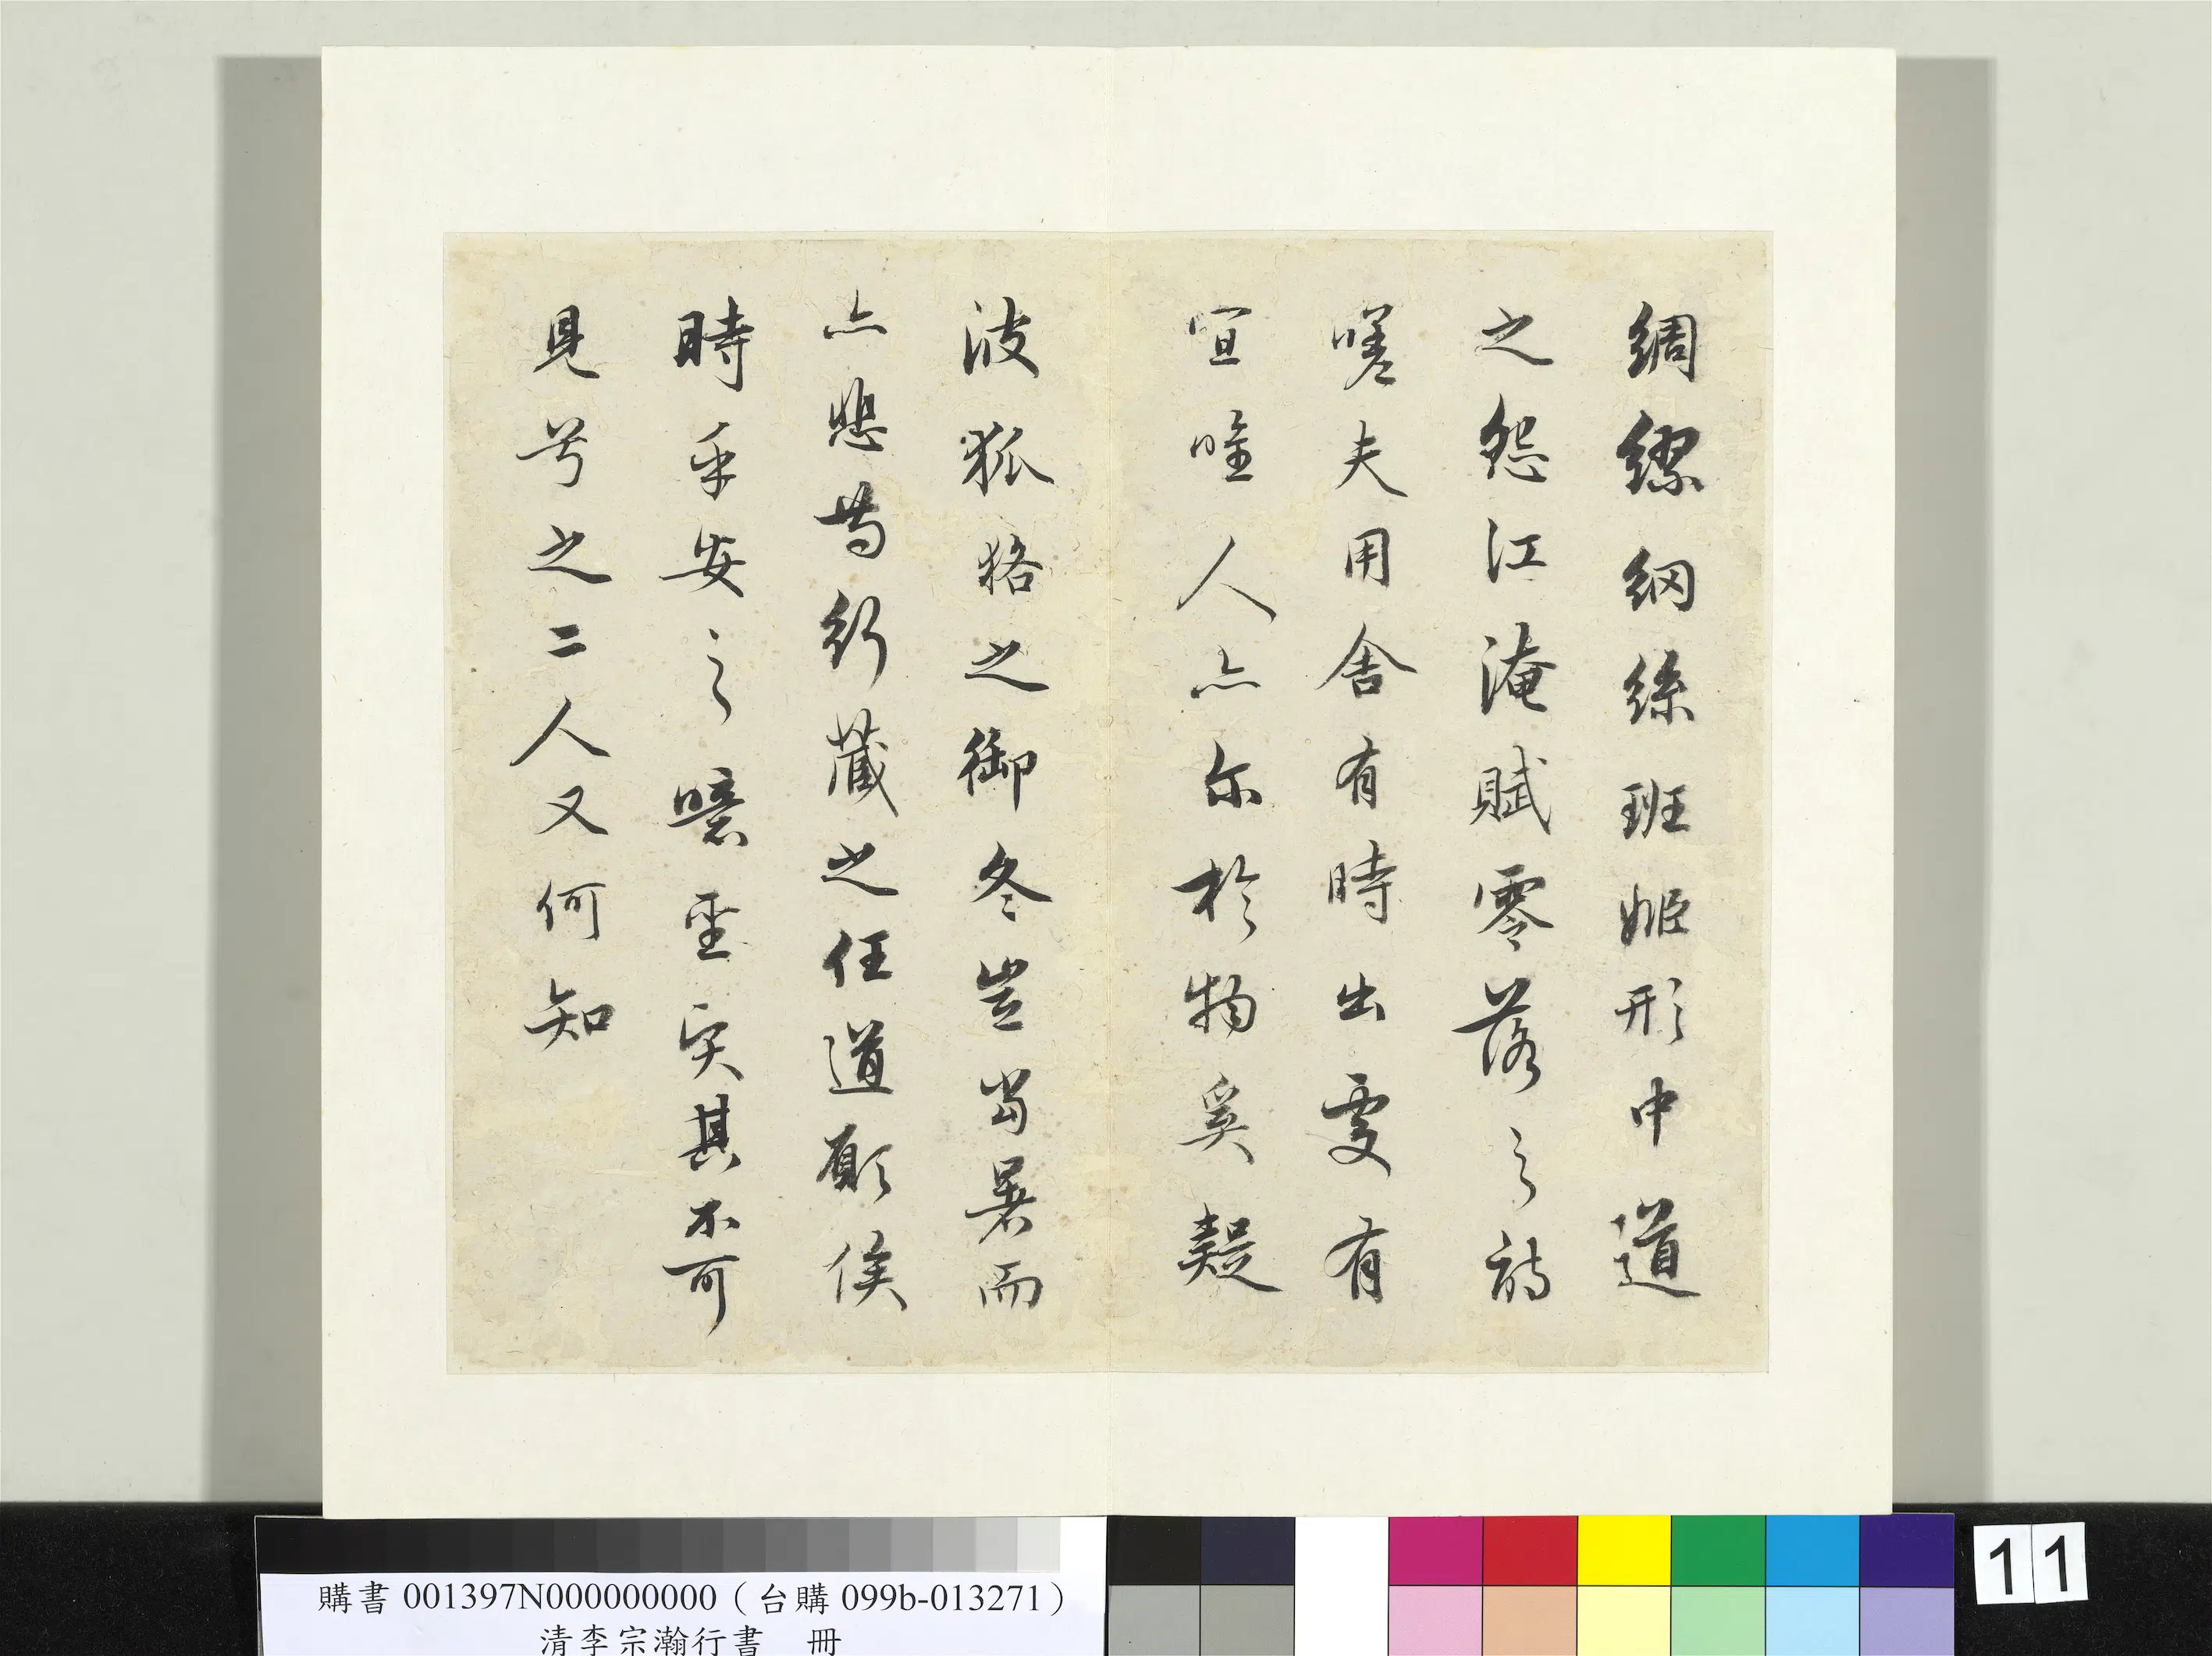 綢繆網絲班姬形中道
之怨江淹賦零落之詩
嗟夫用舍有時出處有
宜唯人亦尓於物奚疑
彼狐狢之御冬豈當暑而
亦悲苟行藏之任道願俟
時乎安之噫聖與其不可
見兮之二人又何知
購書 001397N000000000（台購 099b-013271）
清李宗瀚行書　冊
11